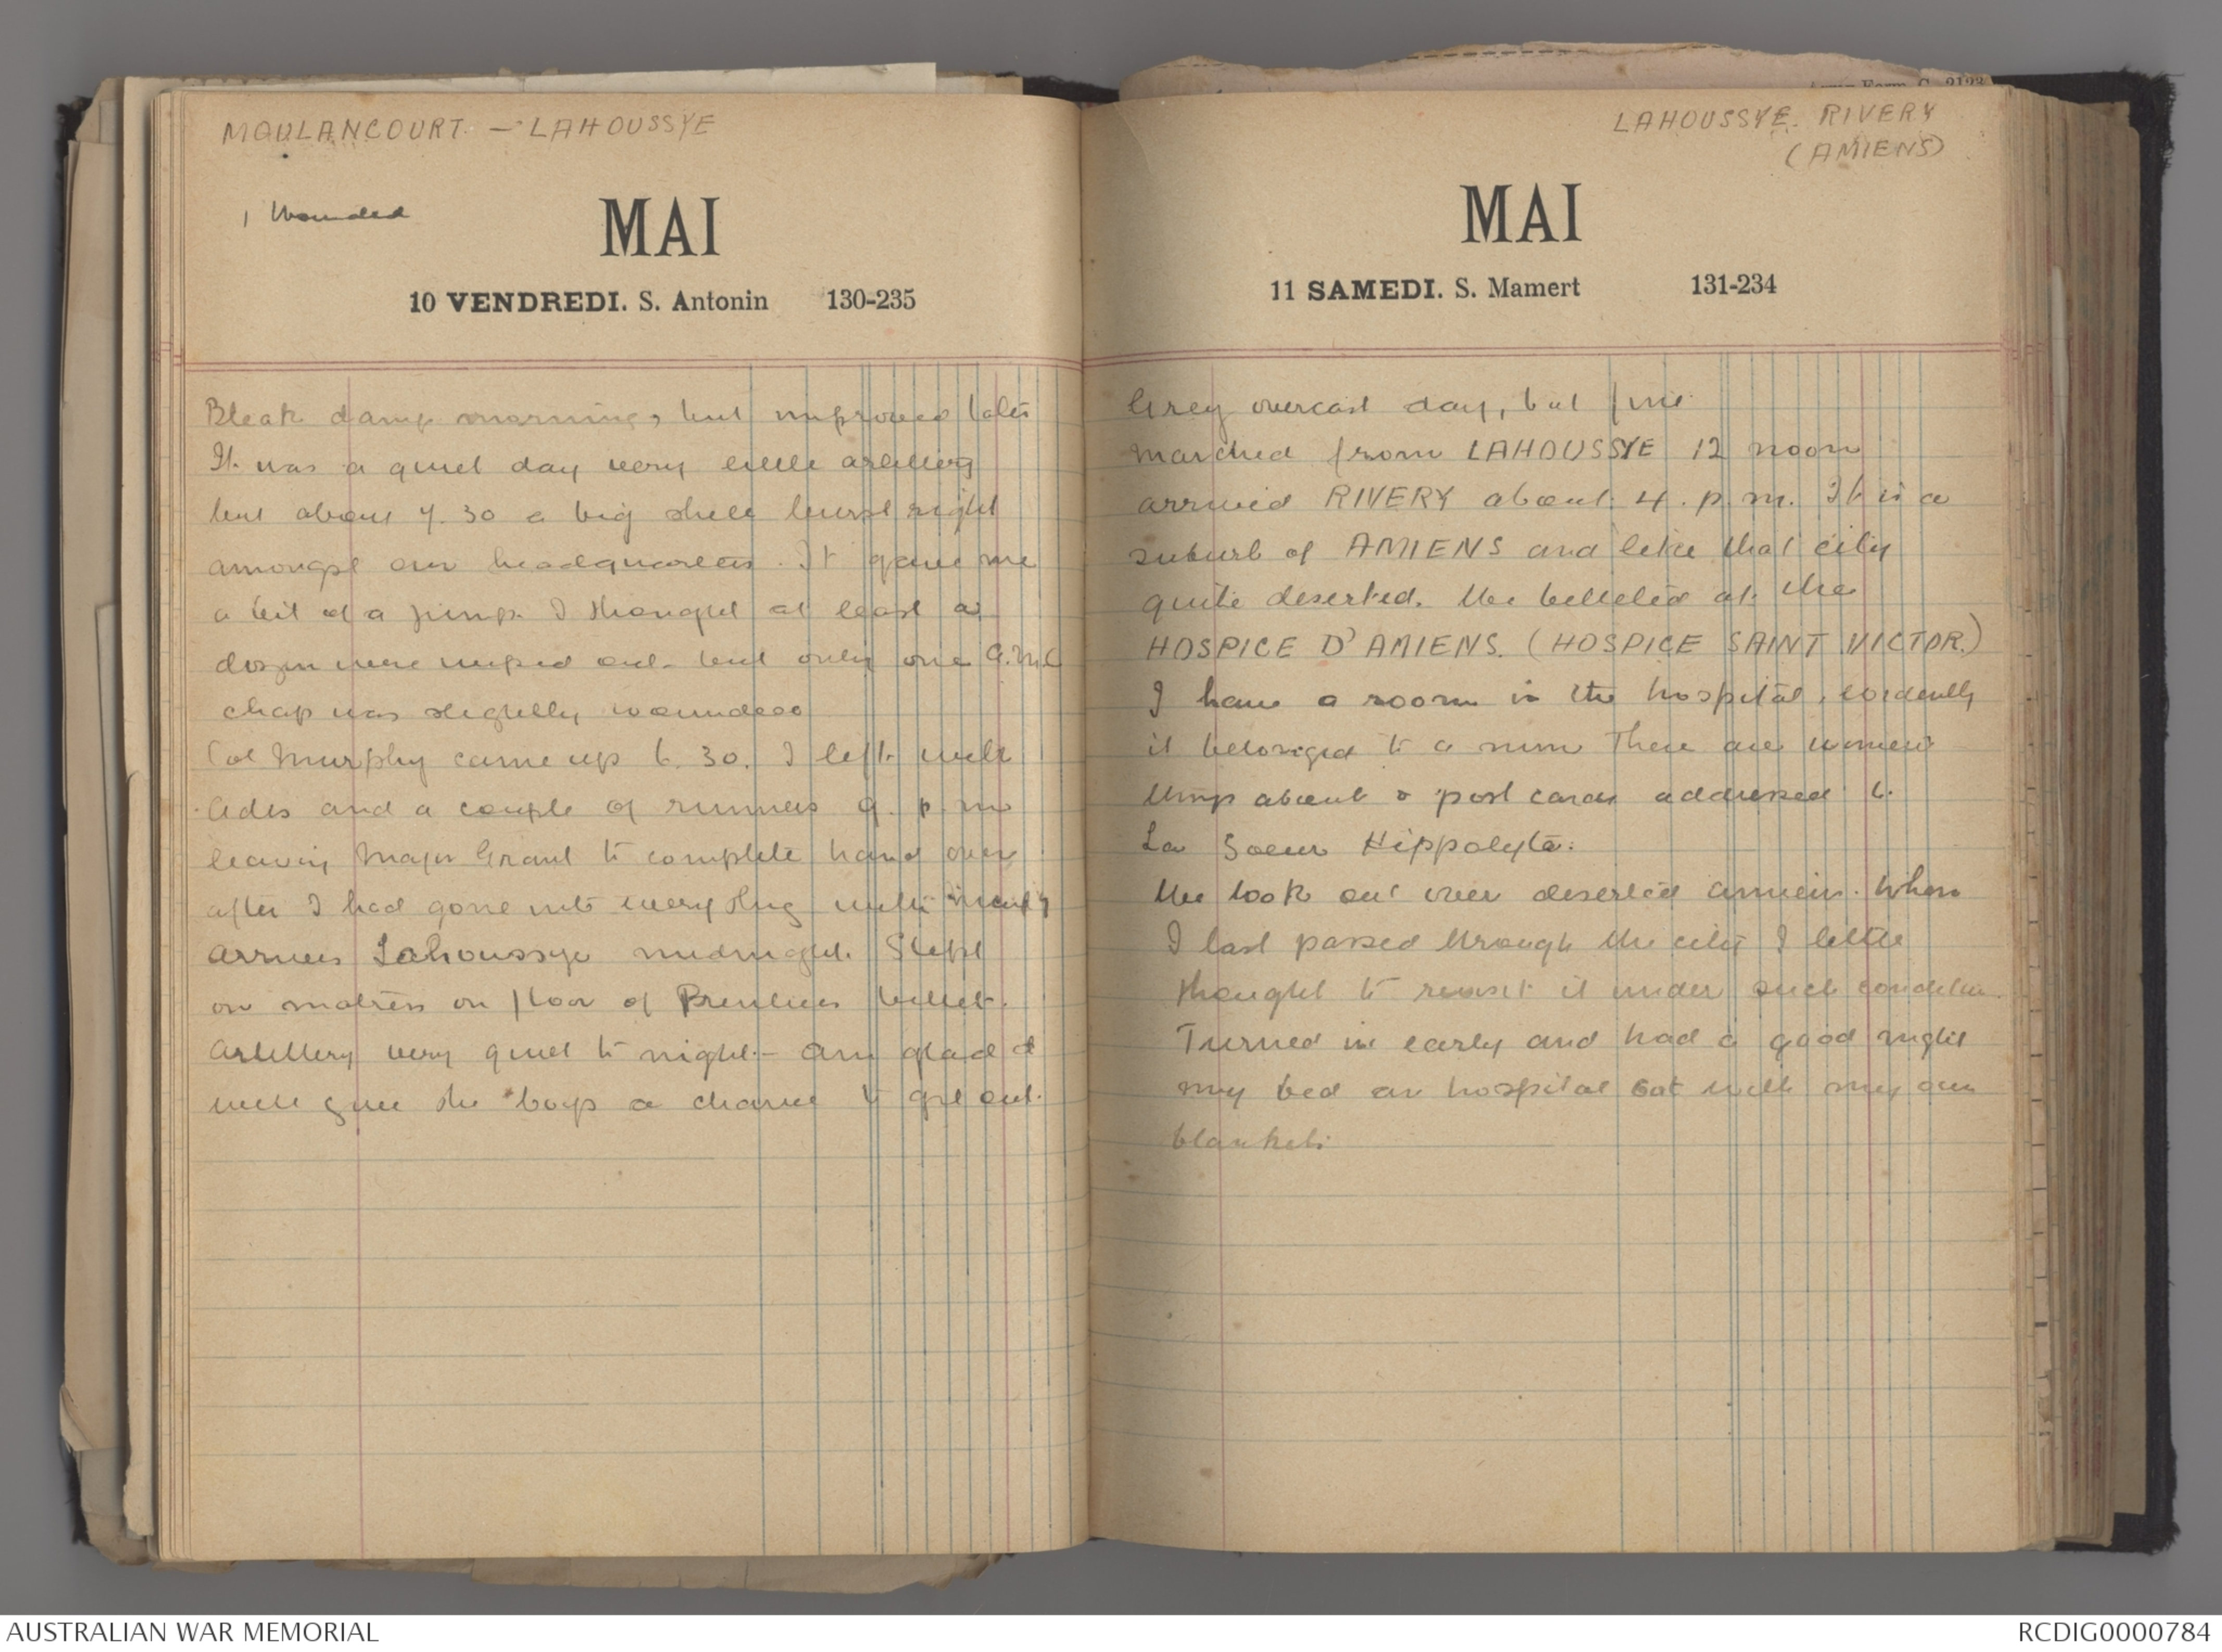 MOULANCOURT. – LAHOUSSYE
1 Wounded
MAI
10 VENDREDI. S. Antonin 130-235
Bleak damp morning, but improved later
It was a quiet day very little artillery
but about 7.30 a big shell burst right
amongst our headquarters. It gave me
a bit of a jump. I thought at least a
dozen were wiped out but only one A.M.C
chap was slightly wounded
Col Murphy came up 6.30. I left with
Ades and a couple of runners 9. p.m
leaving Major Grant to complete hand over
after I had gone into everything with
arrives Lahoussye midnight. Slept
on matress on floor of billet.
artillery very quiet to night – am glad it
will give the boys a chance to get out.
Army Form C. 2123
LAHOUSSYE. RIVERY
(AMIENS)
MAI
11 SAMEDI. S. Mamert 131-234
Grey overcast day, but fine.
marched from LAHOUSSYE 12 noon
arrived RIVERY about 4. p.m. It is a
suburb of AMIENS and like that city
quite deserted. We billeted at the
HOSPICE D'AMIENS. (HOSPICE SAINT VICTOR.)
I have a room in the hospital, evidently
it belonged to a nun There are women's
things about & post cards addressed to
La Soeur Hippolyte.
We look out over deserted amiens. When
I last passed through the city I little
thought to revisit it under such condition.
Turned in early and had a good night
my bed an hospital cot with my own
blankets.
AUSTRALIAN WAR MEMORIAL
RCDIG0000784